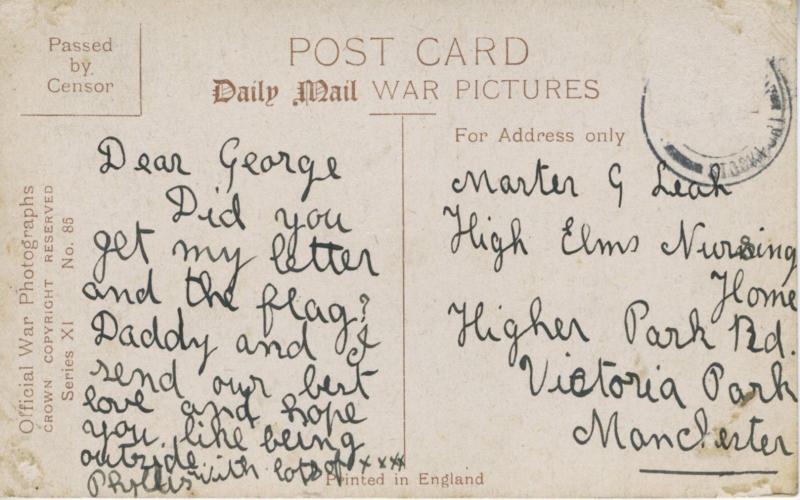 Passed
by
Censor
POST CARD
Daily Mail WAR PICTURES
Official War Photographs
CROWN COPYRIGHT RESERVED
Series XI No. 85
Dear George
Did you
get my letter
and the flag?
Daddy and I
send our best
love and hope
you like being
outside.
Phyllis with lots of xxxx
For Address only
Master G Leah
High Elms Nursing
Home
Higher Park Rd.
Victoria Park
Manchester
Printed in England